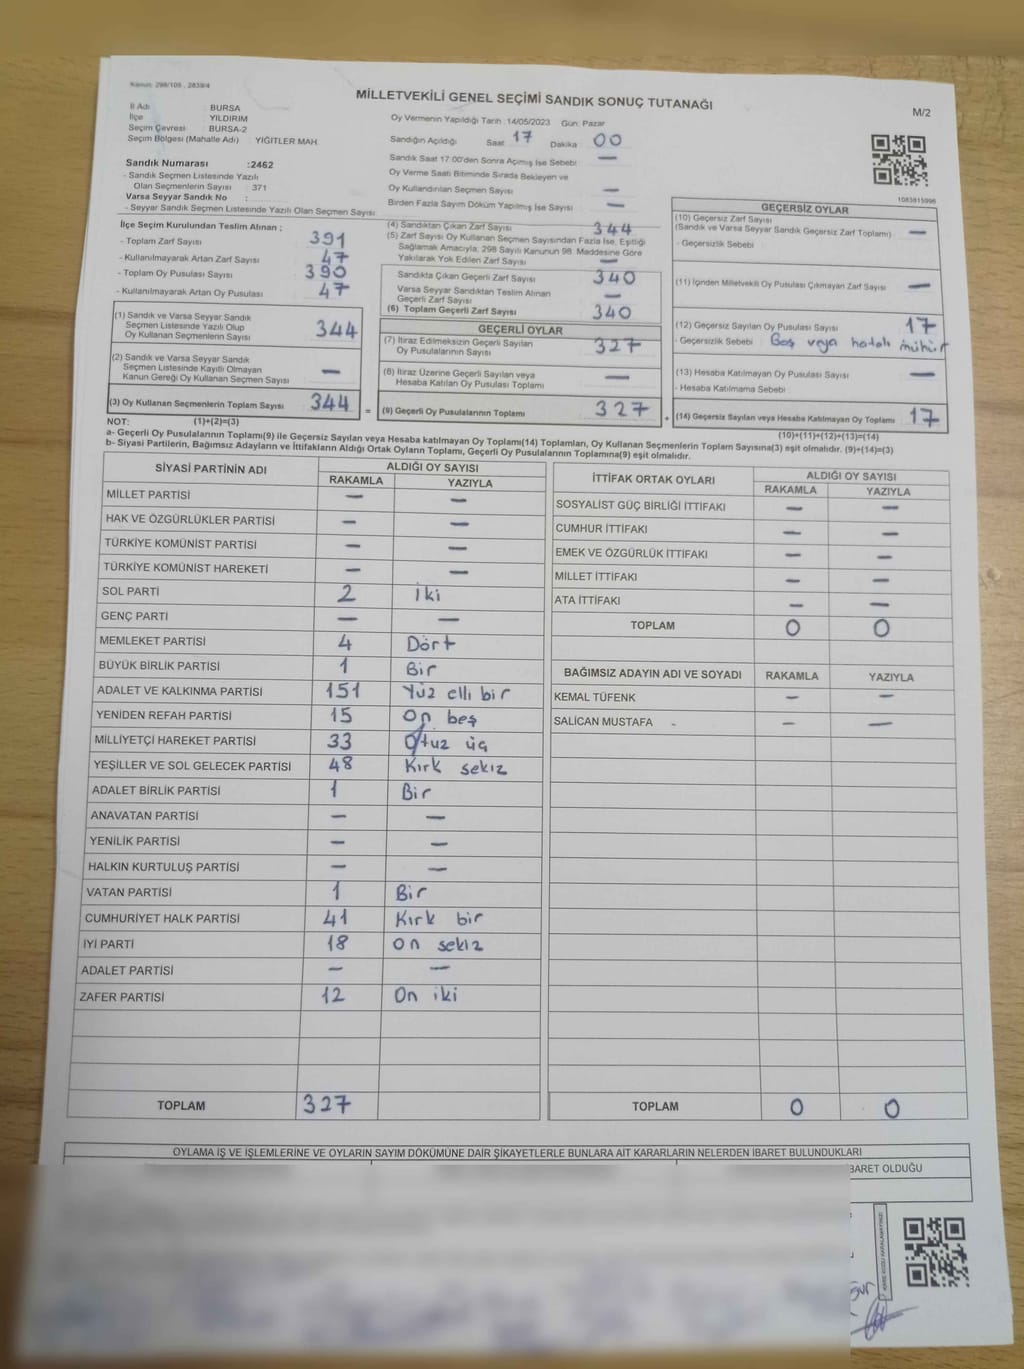 Kanun: 298/105 , 2839/4
MİLLETVEKİLİ GENEL SEÇİMİ SANDIK SONUÇ TUTANAĞI
M/2
İl Adı : BURSA
İlçe : YILDIRIM
Seçim Çevresi : BURSA-2
Seçim Bölgesi (Mahalle Adı) : YİĞİTLER MAH.
Sandık Numarası :2462
- Sandık Seçmen Listesinde Yazılı
Olan Seçmenlerin Sayısı : 371
Varsa Seyyar Sandık No :
- Seyyar Sandık Seçmen Listesinde Yazılı Olan Seçmen Sayısı:
Oy Vermenin Yapıldığı Tarih :14/05/2023 Gün: Pazar
Sandığın Açıldığı Saat 17 Dakika 00
Sandık Saat 17:00'den Sonra Açılmış İse Sebebi : —
Oy Verme Saati Bitiminde Sırada Bekleyen ve
Oy Kullandırılan Seçmen Sayısı : —
Birden Fazla Sayım Döküm Yapılmış İse Sayısı : —
1083815996
İlçe Seçim Kurulundan Teslim Alınan ;
- Toplam Zarf Sayısı : 391
- Kullanılmayarak Artan Zarf Sayısı : 47
- Toplam Oy Pusulası Sayısı : 390
- Kullanılmayarak Artan Oy Pusulası : 47
(1) Sandık ve Varsa Seyyar Sandık
Seçmen Listesinde Yazılı Olup
Oy Kullanan Seçmenlerin Sayısı 344
(2) Sandık ve Varsa Seyyar Sandık
Seçmen Listesinde Kayıtlı Olmayan
Kanun Gereği Oy Kullanan Seçmen Sayısı —
(3) Oy Kullanan Seçmenlerin Toplam Sayısı 344 =
(4) Sandıktan Çıkan Zarf Sayısı : 344
(5) Zarf Sayısı Oy Kullanan Seçmen Sayısından Fazla İse, Eşitliği
Sağlamak Amacıyla, 298 Sayılı Kanunun 98. Maddesine Göre
Yakılarak Yok Edilen Zarf Sayısı : —
Sandıkta Çıkan Geçerli Zarf Sayısı : 340
Varsa Seyyar Sandıktan Teslim Alınan
Geçerli Zarf Sayısı : —
(6) Toplam Geçerli Zarf Sayısı : 340
GEÇERLİ OYLAR
(7) İtiraz Edilmeksizin Geçerli Sayılan
Oy Pusulalarının Sayısı : 327
(8) İtiraz Üzerine Geçerli Sayılan veya
Hesaba Katılan Oy Pusulası Toplamı : —
(9) Geçerli Oy Pusulalarının Toplamı : 327 +
GEÇERSİZ OYLAR
(10) Geçersiz Zarf Sayısı
(Sandık ve Varsa Seyyar Sandık Geçersiz Zarf Toplamı) : —
- Geçersizlik Sebebi :
(11) İçinden Milletvekili Oy Pusulası Çıkmayan Zarf Sayısı : —
(12) Geçersiz Sayılan Oy Pusulası Sayısı : 17
- Geçersizlik Sebebi : Boş veya hatalı mühür
(13) Hesaba Katılmayan Oy Pusulası Sayısı : —
- Hesaba Katılmama Sebebi :
(14) Geçersiz Sayılan veya Hesaba Katılmayan Oy Toplamı : 17
NOT: (1)+(2)=(3) (10)+(11)+(12)+(13)=(14)
a- Geçerli Oy Pusulalarının Toplamı(9) ile Geçersiz Sayılan veya Hesaba katılmayan Oy Toplamı(14) Toplamları, Oy Kullanan Seçmenlerin Toplam Sayısına(3) eşit olmalıdır. (9)+(14)=(3)
b- Siyasi Partilerin, Bağımsız Adayların ve İttifakların Aldığı Ortak Oyların Toplamı, Geçerli Oy Pusulalarının Toplamına(9) eşit olmalıdır.
SİYASİ PARTİNİN ADI ALDIĞI OY SAYISI
RAKAMLA YAZIYLA
MİLLET PARTİSİ — —
HAK VE ÖZGÜRLÜKLER PARTİSİ — —
TÜRKİYE KOMÜNİST PARTİSİ — —
TÜRKİYE KOMÜNİST HAREKETİ — —
SOL PARTİ 2 İki
GENÇ PARTİ — —
MEMLEKET PARTİSİ 4 Dört
BÜYÜK BİRLİK PARTİSİ 1 Bir
ADALET VE KALKINMA PARTİSİ 151 Yüz elli bir
YENİDEN REFAH PARTİSİ 15 On beş
MİLLİYETÇİ HAREKET PARTİSİ 33 Otuz üç
YEŞİLLER VE SOL GELECEK PARTİSİ 48 Kırk sekiz
ADALET BİRLİK PARTİSİ 1 Bir
ANAVATAN PARTİSİ — —
YENİLİK PARTİSİ — —
HALKIN KURTULUŞ PARTİSİ — —
VATAN PARTİSİ 1 Bir
CUMHURİYET HALK PARTİSİ 41 Kırk bir
İYİ PARTİ 18 On sekiz
ADALET PARTİSİ — —
ZAFER PARTİSİ 12 On iki
TOPLAM 327
İTTİFAK ORTAK OYLARI ALDIĞI OY SAYISI
RAKAMLA YAZIYLA
SOSYALİST GÜÇ BİRLİĞİ İTTİFAKI — —
CUMHUR İTTİFAKI — —
EMEK VE ÖZGÜRLÜK İTTİFAKI — —
MİLLET İTTİFAKI — —
ATA İTTİFAKI — —
TOPLAM 0 0
BAĞIMSIZ ADAYIN ADI VE SOYADI RAKAMLA YAZIYLA
KEMAL TÜFENK — —
SALİCAN MUSTAFA — —
TOPLAM 0 0
OYLAMA İŞ VE İŞLEMLERİNE VE OYLARIN SAYIM DÖKÜMÜNE DAİR ŞİKAYETLERLE BUNLARA AİT KARARLARIN NELERDEN İBARET BULUNDUKLARI
BARET OLDUĞU